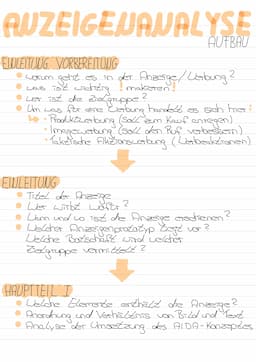 ANZEIGENANALYSE
AUFBAU
EINLEITUNG VORBEREITUNG
worum geht es in der Anzeige/Werbung?
was ist wichtig ! markieren !
wer ist die Zielgruppe?
Um was für eine Werbung handelt es sich hier:
Produktwerbung (Soll zum Kauf anregen)
Imagewerbung (Soll den Ruf verbessern)
Taktische Aktionswerbung (Werbeaktionen)
EINLEITUNG
Titel der Anzeige
Wer wirbt wofür?
Wann und wo ist die Anzeige erschienen?
Welcher Anzeigenprototyp liegt vor?
Welche Botschaft wird welcher
Zielgruppe vermittelt?
HAUPTTEIL I
Welche Elemente enthält die Anzeige?
Anordnung und Verhältnis von Bild und Text
Analyse der Umsetzung des AIDA-Konzeptes